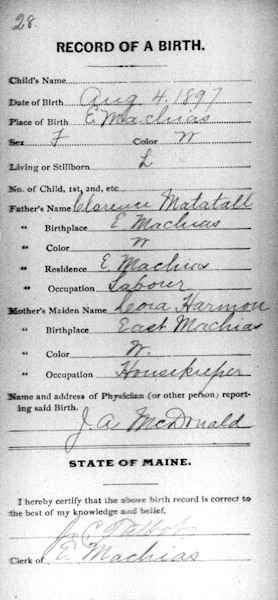 28.
RECORD OF A BIRTH.
Child's Name
Date of Birth Aug 4, 1897
Place of Birth E Machias
Sex F Color W
Living or Stillborn L
No. of Child, 1st, 2nd, etc
Father's Name Clarence Matatall
" Birthplace E Machias
" Color W
" Residence E. Machias
" Occupation Labourer
Mother's Maiden Name Cora Harmon
" Birthplace East Machias
" Color W.
" Occupation Housekeeper
Name and address of Physician (or other person) report-
ing said Birth.
J. A. McDonald
STATE OF MAINE.
I hereby certify that the above birth record is correct to
the best of my knowledge and belief.
Talbot
Clerk of E. Machias